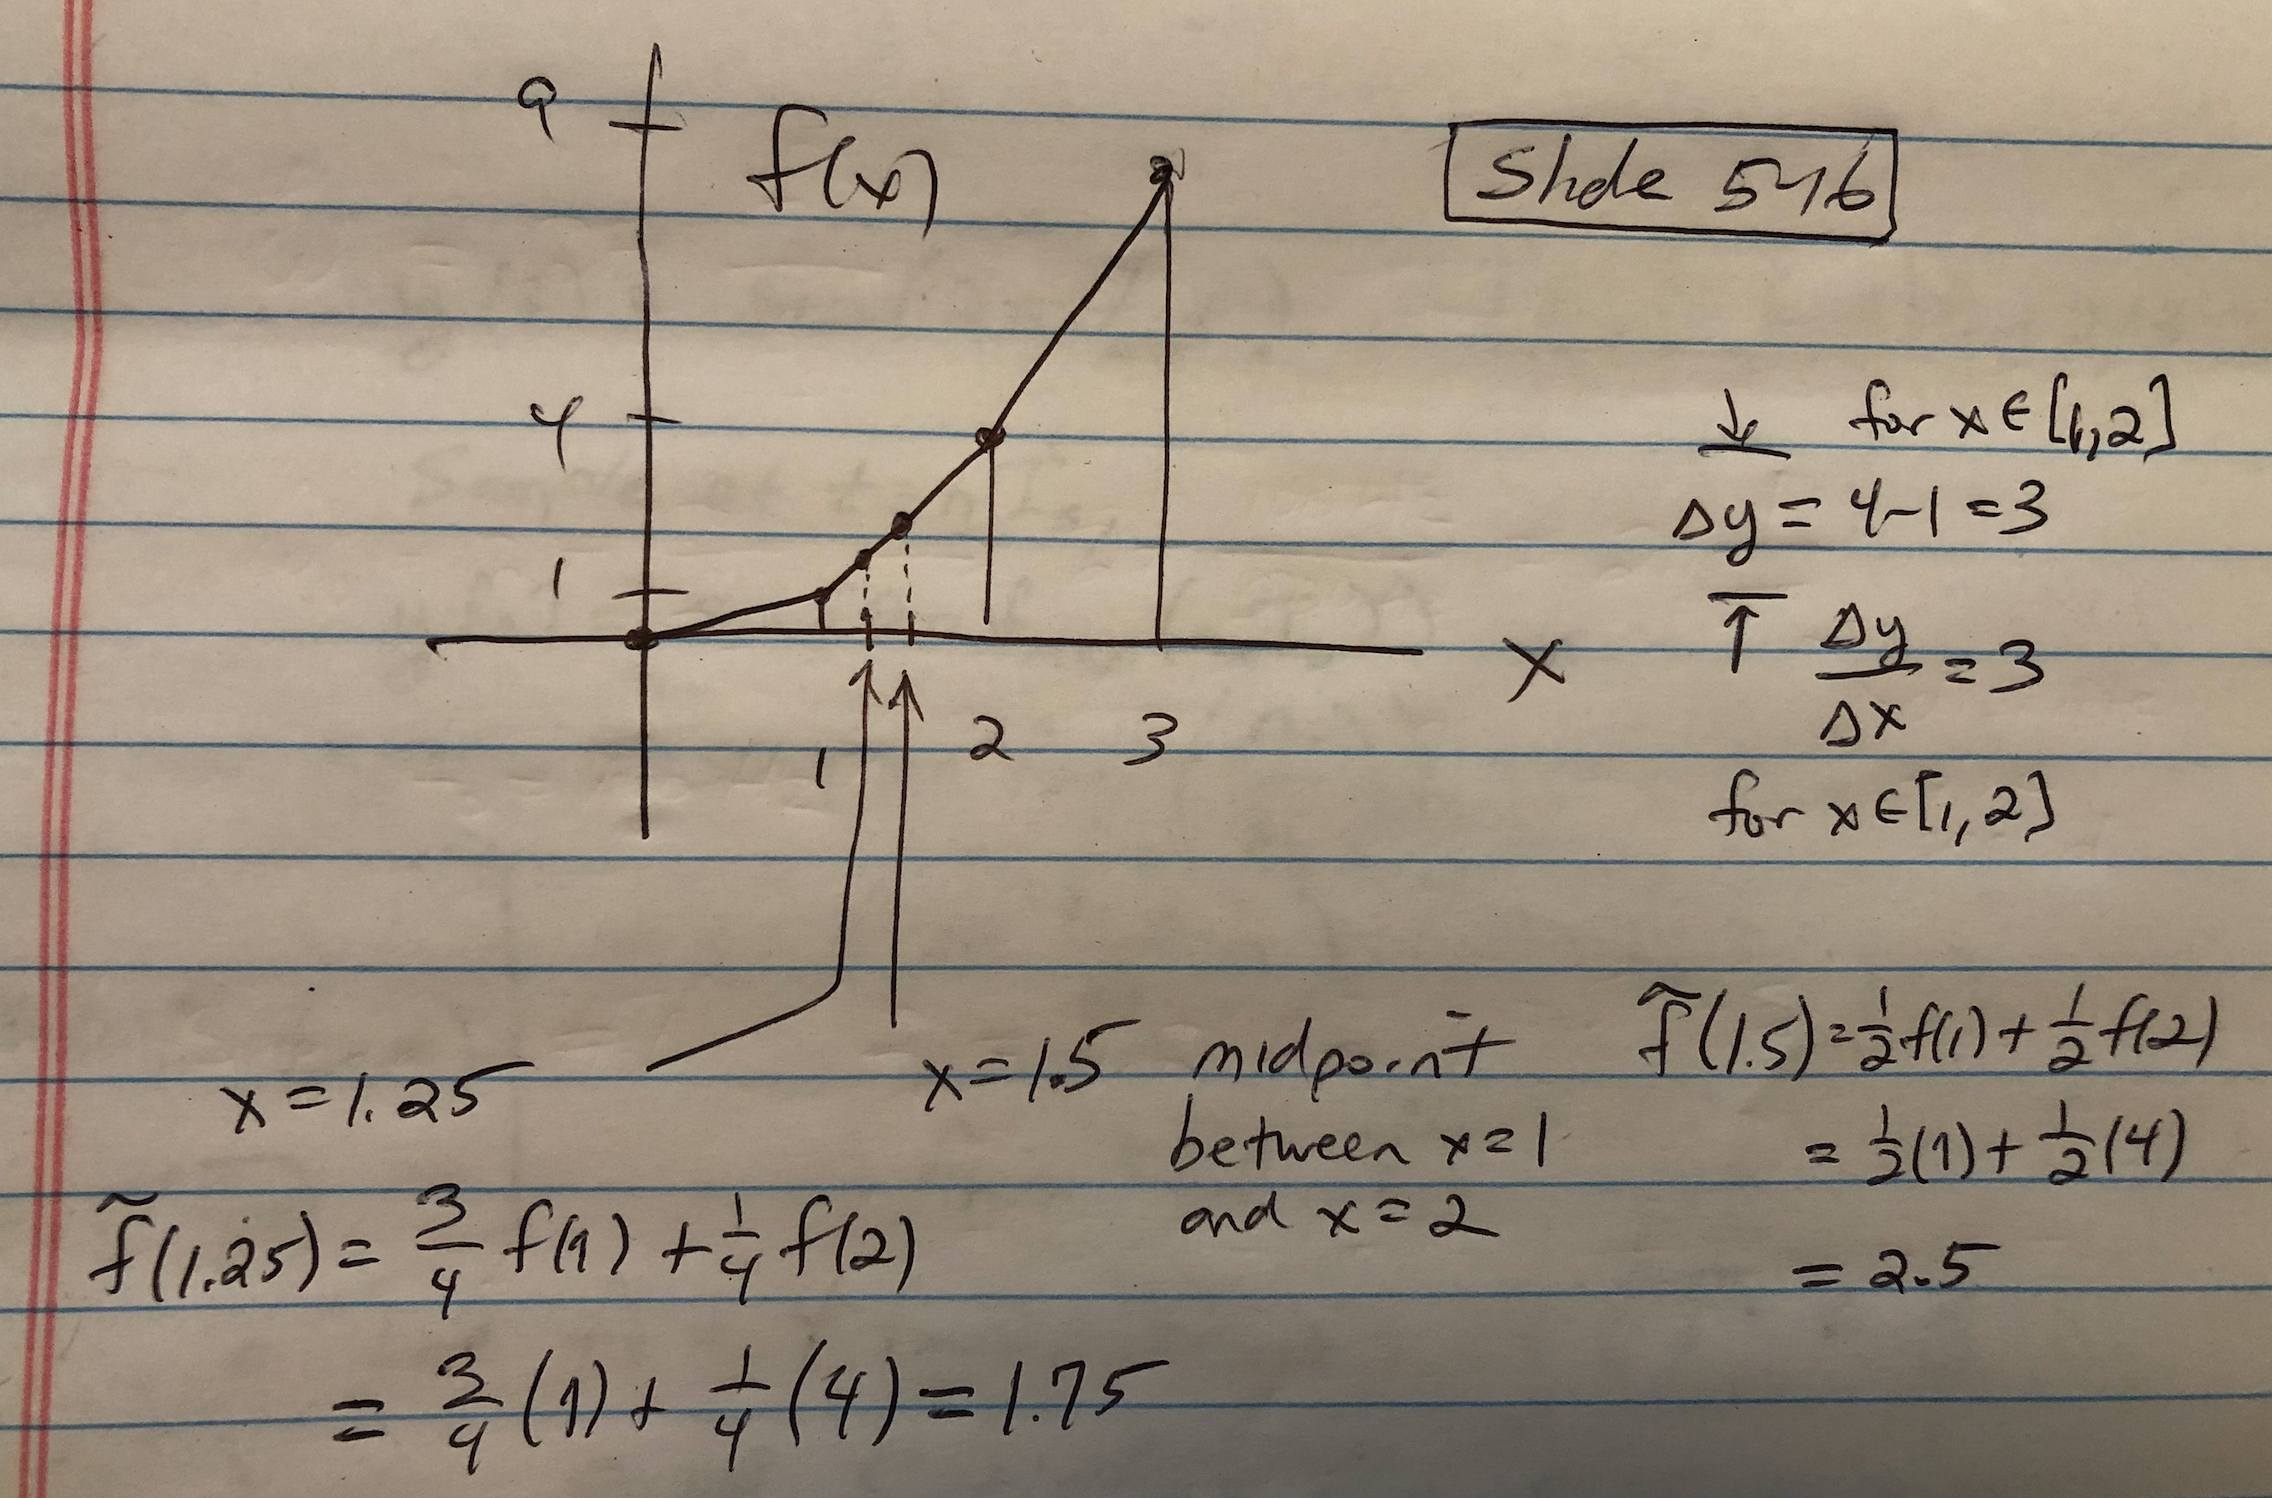 9
f(x)
Slide 546
4
1
x
1
2
3
for x ∈ [1,2]
Δy = 4-1 = 3
Δy/Δx = 3
for x ∈ [1,2]
x = 1.25
x = 1.5 midpoint
between x = 1
and x = 2
f̃(1.5) = 1/2 f(1) + 1/2 f(2)
= 1/2(1) + 1/2(4)
= 2.5
f̃(1.25) = 3/4 f(1) + 1/4 f(2)
= 3/4 (1) + 1/4 (4) = 1.75